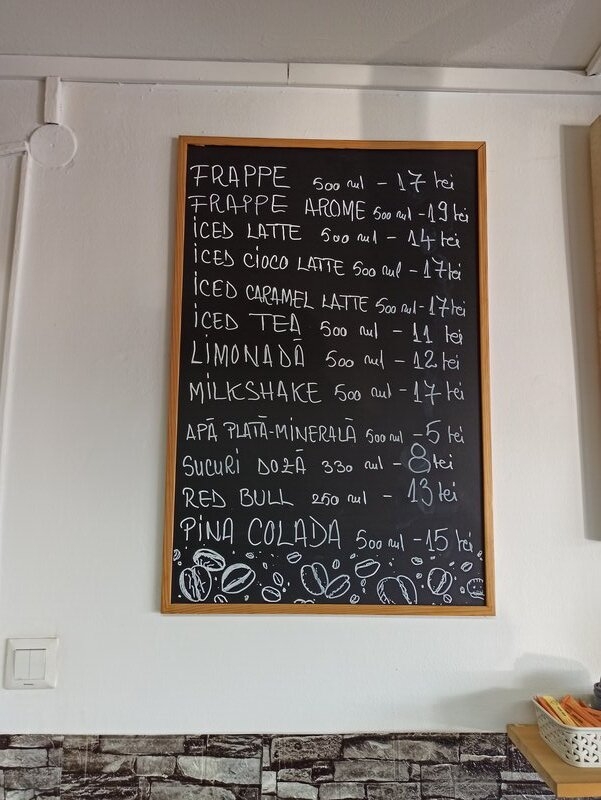 FRAPPE 500 ml - 17 lei
FRAPPE AROME 500 ml - 19 lei
iCED LATTE 500 ml - 14 lei
iCED CiOCO LATTE 500 ml - 17 lei
iCED CARAMEL LATTE 500 ml - 17 lei
iCED TEA 500 ml - 11 lei
LiMONADĂ 500 ml - 12 lei
MiLKSHAKE 500 ml - 17 lei
APĂ PLATĂ-MiNERALĂ 500 ml - 5 lei
SUCURi DOZĂ 330 ml - 8 lei
RED BULL 250 ml - 13 lei
PiNA COLADA 500 ml - 15 lei